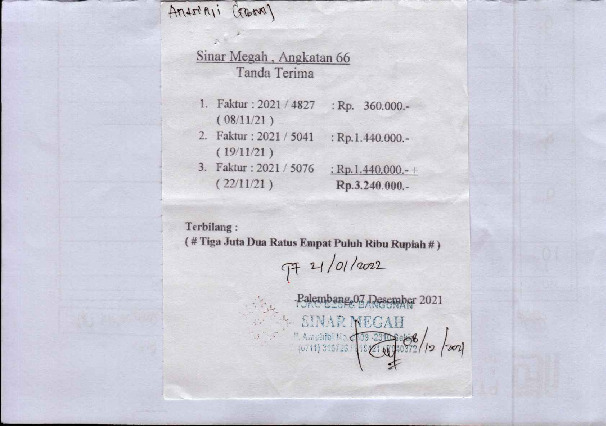 Sinar Megah , Angkatan 66
Tanda Terima
1. Faktur : 2021 / 4827 : Rp. 360.000.-
( 08/11/21 )
2. Faktur : 2021 / 5041 : Rp.1.440.000.-
( 19/11/21 )
3. Faktur : 2021 / 5076 : Rp.1.440.000.- +
( 22/11/21 ) Rp.3.240.000.-
Terbilang :
( # Tiga Juta Dua Ratus Empat Puluh Ribu Rupiah # )
21/01/2022
Palembang,07 Desember 2021
BANGUNAN
SINAR MEGAH
08/12/2021